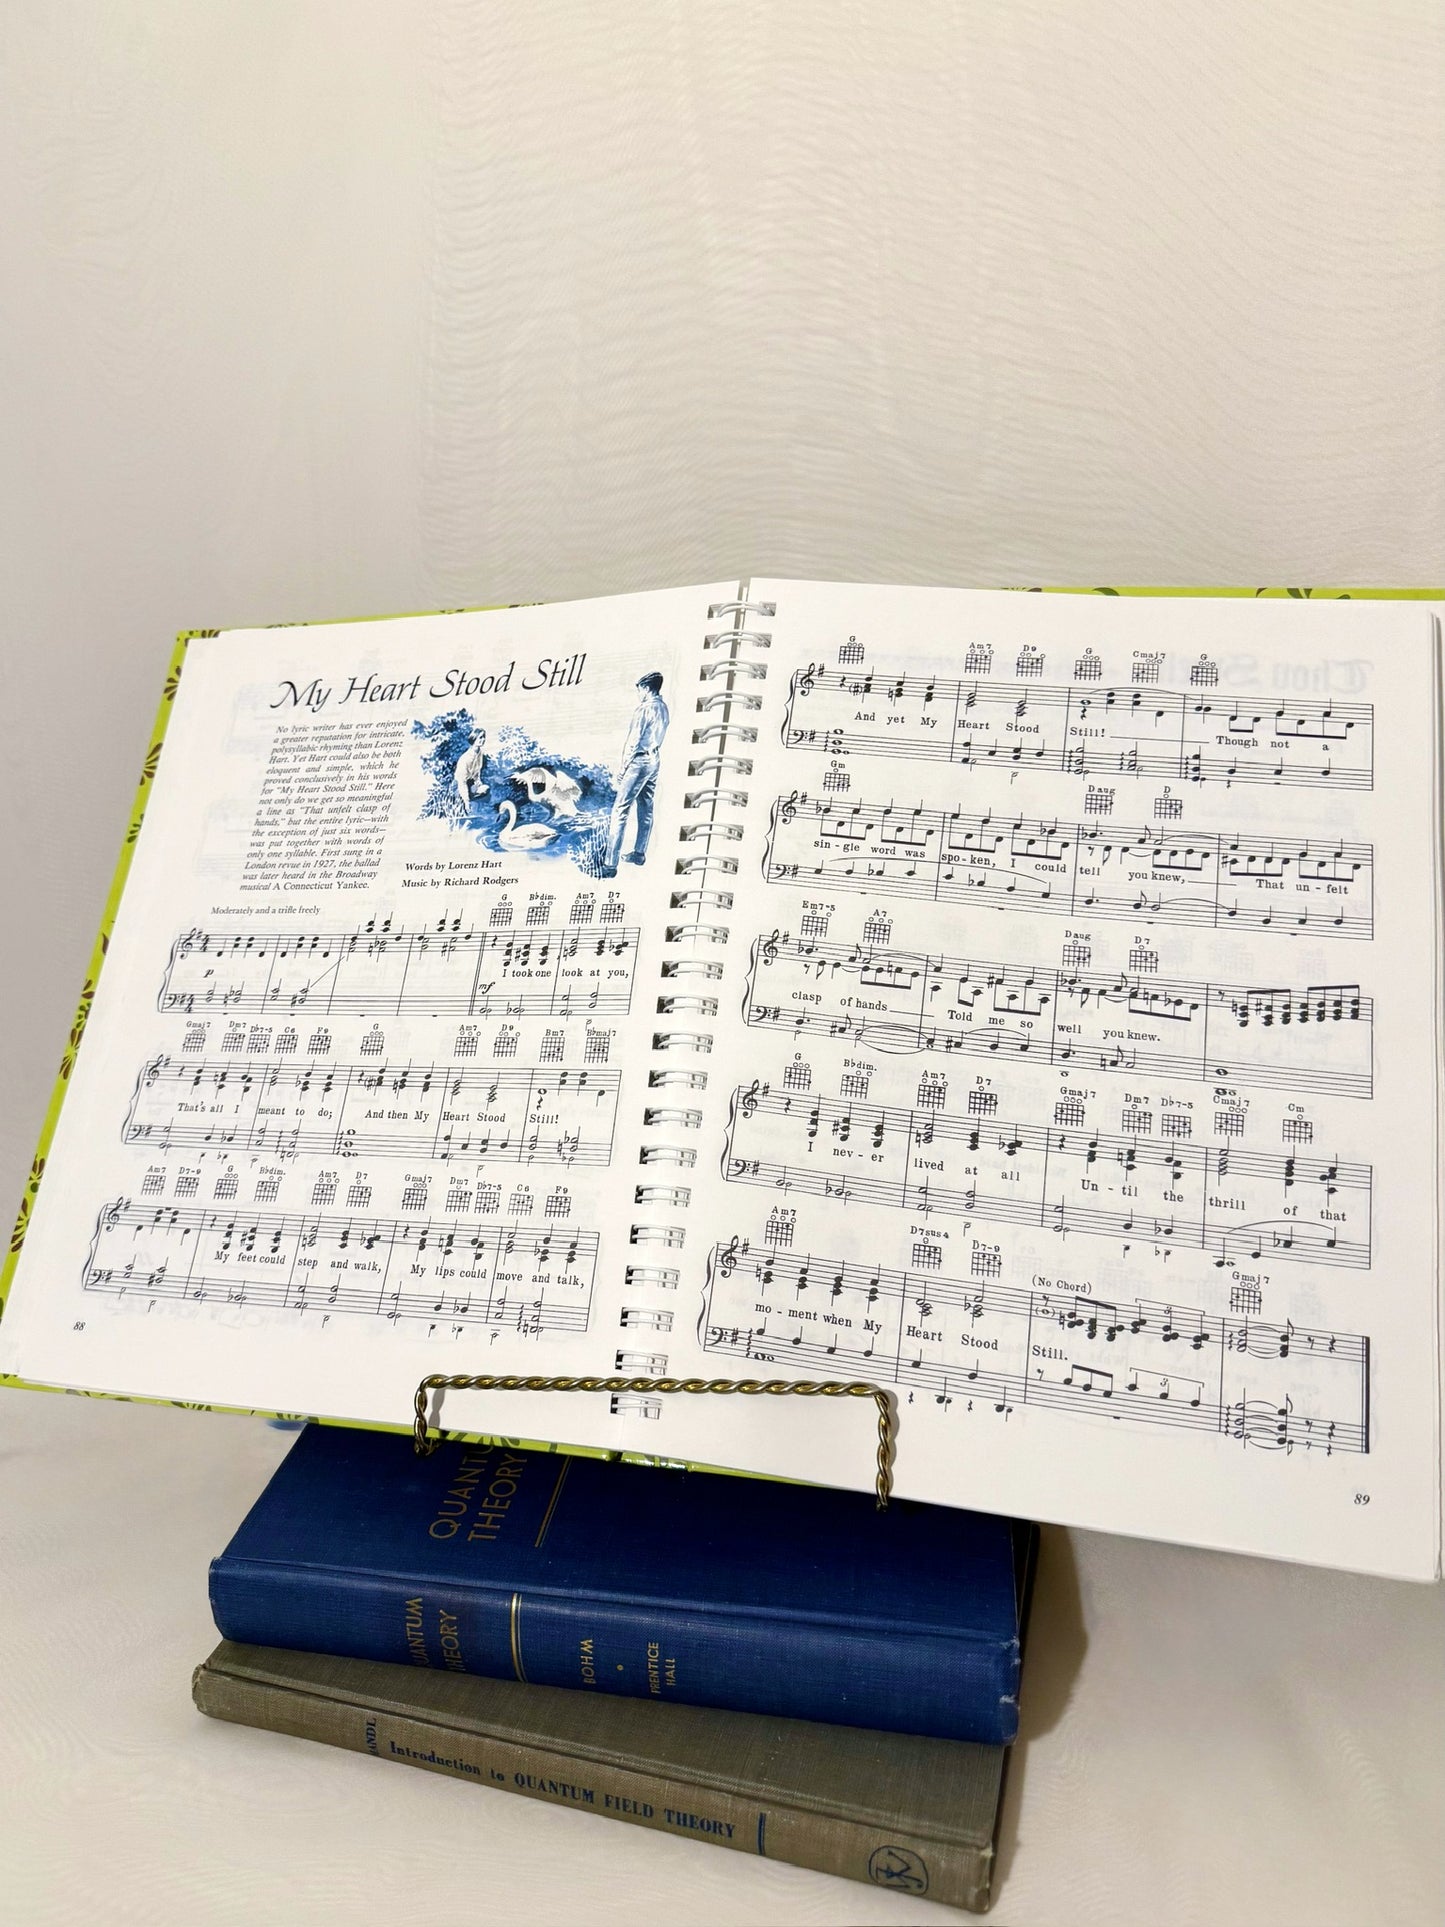 My Heart Stood Still
No lyric writer has ever enjoyed
a greater reputation for intricate,
polysyllabic rhyming than Lorenz
Hart. Yet Hart could also be both
eloquent and simple, which he
proved conclusively in his words
for "My Heart Stood Still." Here
not only do we get so meaningful
a line as "That unfelt clasp of
hands," but the entire lyric—with
the exception of just six words—
was put together with words of
only one syllable. First sung in a
London revue in 1927, the ballad
was later heard in the Broadway
musical A Connecticut Yankee.
Words by Lorenz Hart
Music by Richard Rodgers
Moderately and a trifle freely
G B♭dim. Am7 D7
p mf
I took one look at you,
Gmaj7 Dm7 D♭7-5 C6 F9 G Am7 D9 Bm7 B♭maj7
That's all I meant to do; And then My Heart Stood Still!
Am7 D7-9 G B♭dim. Am7 D7 Gmaj7 Dm7 D♭7-5 C6 F9
My feet could step and walk, My lips could move and talk,
88
G Am7 D9 G Cmaj7 G
And yet My Heart Stood Still! Though not a
Gm Daug D
sin-gle word was spo-ken, I could tell you knew, That un-felt
Em7-5 A7 Daug D7
clasp of hands Told me so well you knew.
G B♭dim. Am7 D7 Gmaj7 Dm7 D♭7-5 Cmaj7 Cm
I nev-er lived at all Un-til the thrill of that
Am7 D7sus4 D7-9 (No Chord) Gmaj7
G
3
mo-ment when My Heart Stood Still.
3
89
THEORY
QUANTUM
THEORY
BOHM
PRENTICE
HALL
Introduction to QUANTUM FIELD THEORY